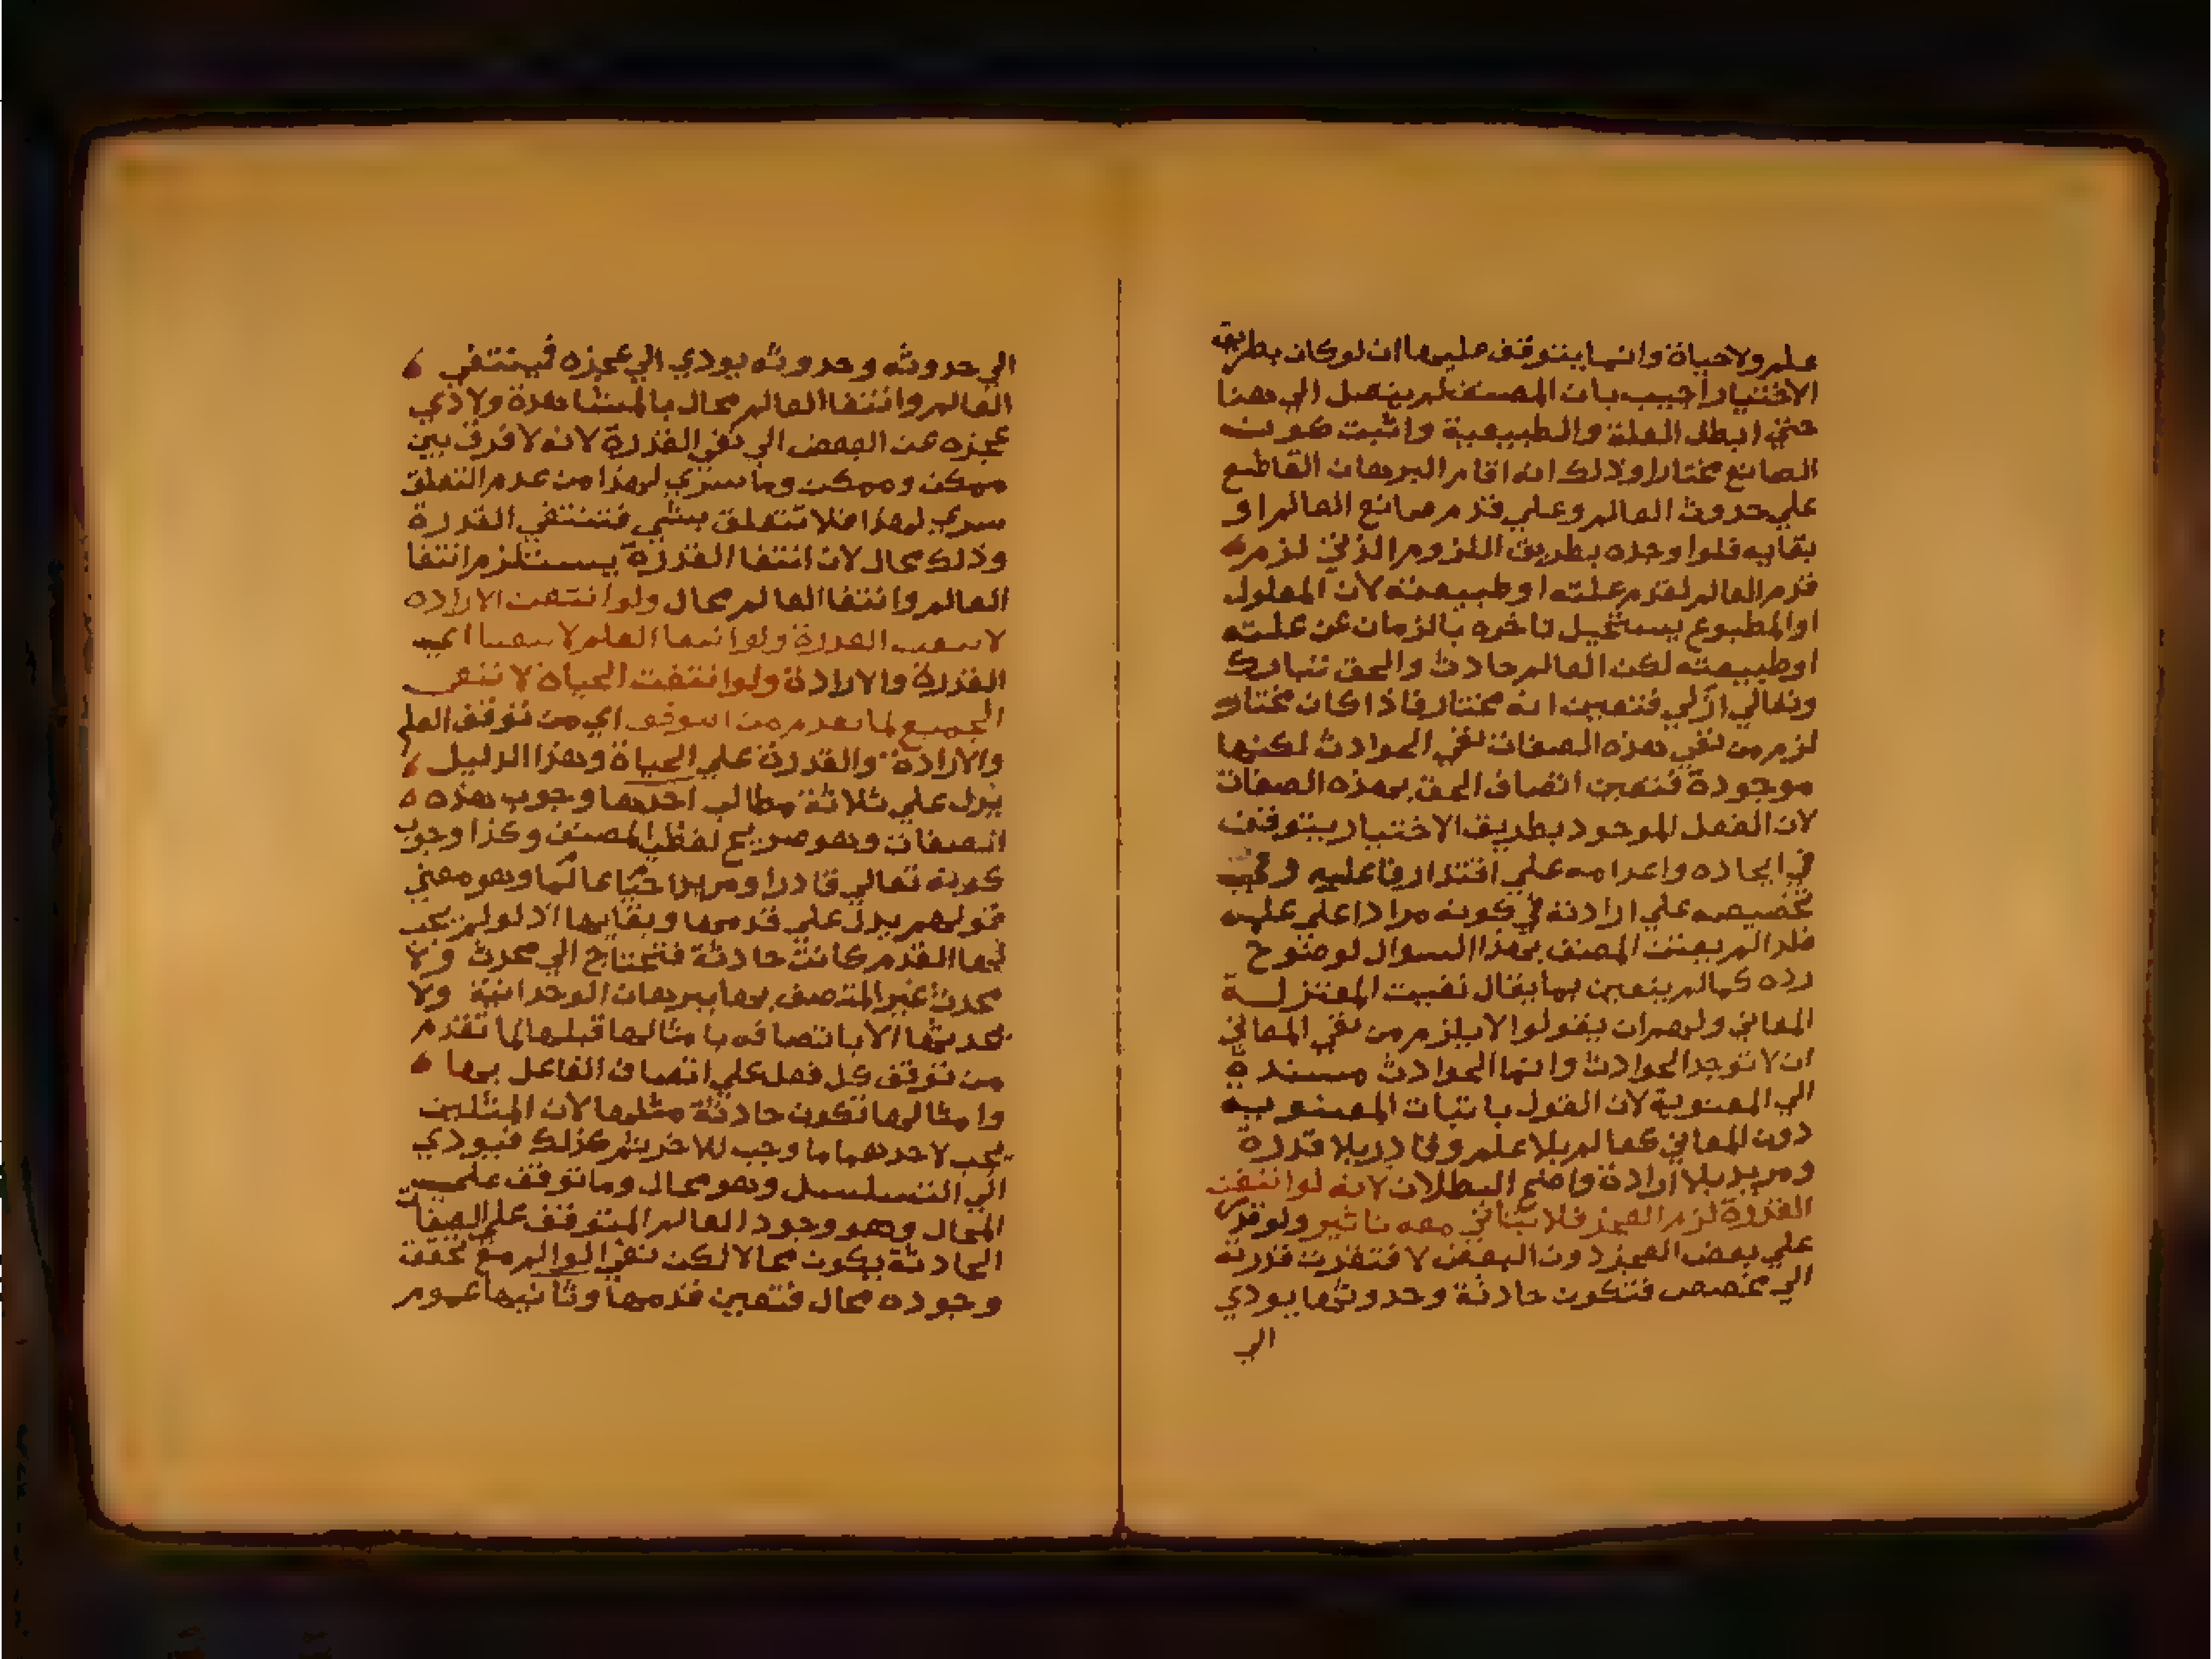 علم ولا حياة وانما يتوقف عليها ان لو كان بطريق
الاختيار اجيب بان المصنف لم يصل الي هنا
حتي ابطل العلة والطبيعية واثبت كون
الصانع مختارا وذلك انه اقام البرهان القاطع
علي حدوث العالم وعلي قدم صانع العالم او
بقايه فلو اوجده بطريق اللزوم الذي لزم
قدم العالم لقدم علته او طبيعته لان المعلول
او المطبوع يستحيل تاخره بالزمان عن علته
او طبيعته لكن العالم حادث والحق تبارك
وتعالي ازلي فتعين انه مختار فاذا كان مختار
لزم من نفي هذه الصفات نفي الحوادث لكنها
موجودة فتعين اتصاف الحق بهذه الصفات
لان الفعل الموجود بطريق الاختيار يتوقف
في ايجاده واعدامه علي اقتدار فاعليه
تخصيصه علي ارادته في كونه مرادا علي علمه
فلذا لم يعتن المصنف بهذا السوال لوضوح
رده كما لم يتعين بما يقال نفيت المعتزلة
المعاني ولهم ان يقولوا لا يلزم من نفي المعاني
ان لا توجد الحوادث وانما الحوادث مسندة
الي المعنوية لان القول باثبات المعنويه
دون المعاني كعالم بلا علم وقادر بلا قدرة
ومريد بلا ارادة واضح البطلان لانه لو انتفت
القدرة لزم العجز فلا يتاتي معه تاثير ولو قدر
علي بعض العجز دون البعض لافتقرت قدرته
الي مخصص فتكون حادثة وحدوثها يودي
الي
الي حدوثه وحدوثه يودي الي عجزه فينتفي
العالم وانتفا العالم محال بالمشاهدة ولادي
عجزه عن البعض الي نفي القدرة لانه لا فرق بين
ممكن وممكن وما سري لهذا من عدم التعلق
سري لهذا فلا تتعلق بشي فتنتفي القدرة
وذلك محال لان انتفا القدرة يستلزم انتفا
العالم وانتفا العالم محال ولو انتفت الاراده
لانتفت القدرة ولو انتفا العلم لانتفتا اي
القدرة والارادة ولو انتفت الحياة لانتفي
الجميع لما تقدم من التوقف اي من توقف العلم
والارادة والقدرة علي الحياة وهذا الدليل
يدل علي ثلاثة مطالب احدها وجوب هذه
الصفات وهو صريح لفظ المصنف وكذا وجوب
كونه تعالي قادرا ومريدا حيا عالما وهو معني
قولهم يدل علي قدمها وبقايها اذ لو لم يجب
لها القدم كانت حادثة فتحتاج الي محدث ولا
محدث غير المتصف بها ببرهان الوحدانية ولا
يحدثها الا باتصافه بامثالها قبلها لما تقدم
من توقف كل فعل علي اتصاف الفاعل بها
وامثالها تكون حادثة مثلها لان المثلين
يجب لاحدهما ما وجب للاخر ثم كذلك فيودي
الي التسلسل وهو محال وما توقف علي
المحال وهو وجود العالم المتوقف علي الصفات
الحادثة يكون محالا لكن نفي العالم مع تحقق
وجوده محال فتعين قدمها وثانيها عموم